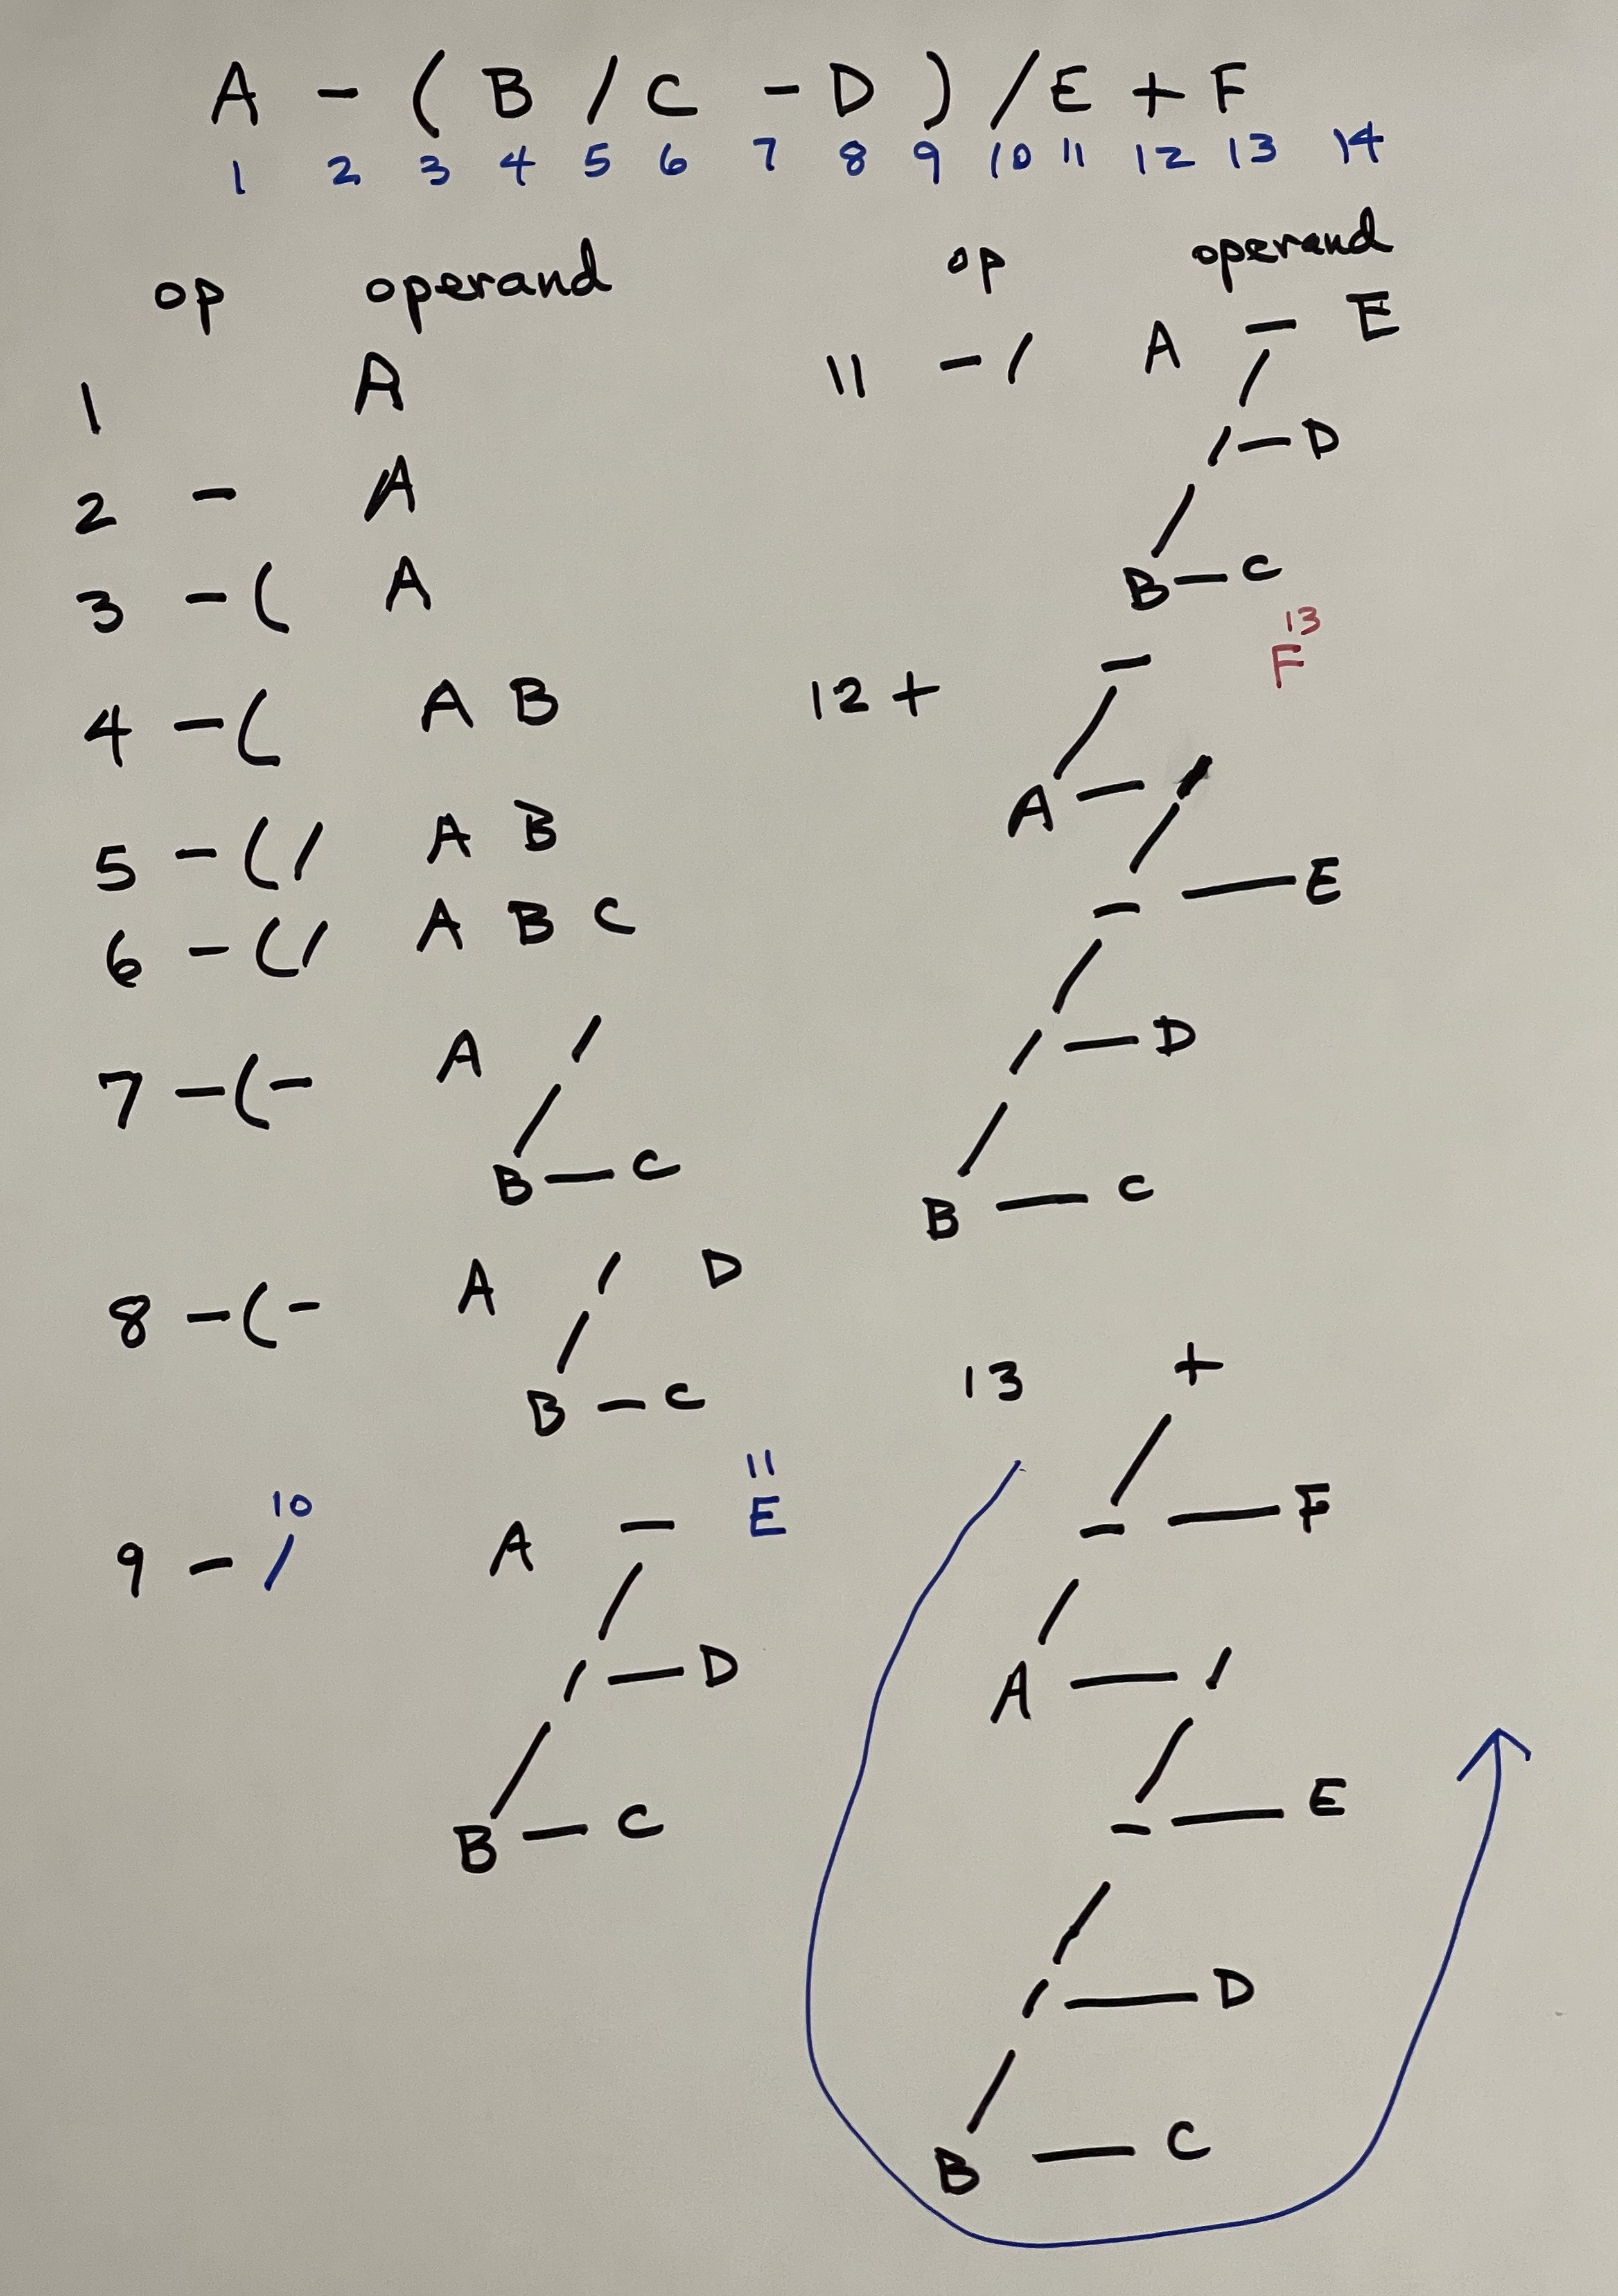 A - ( B / C - D ) / E + F
1 2 3 4 5 6 7 8 9 10 11 12 13 14
op operand
1 A
2 - A
3 - ( A
4 - ( A B
5 - ( / A B
6 - ( / A B C
7 - ( - A /
B - C
8 - ( - A / D
B - C
10 11
9 - / A - E
/ - D
B - C
op operand
11 - / A - E
/ - D
B - C
13
12 + - F
A - /
- - E
/ - D
B - C
13 +
- - F
A - /
- - E
/ - D
B - C